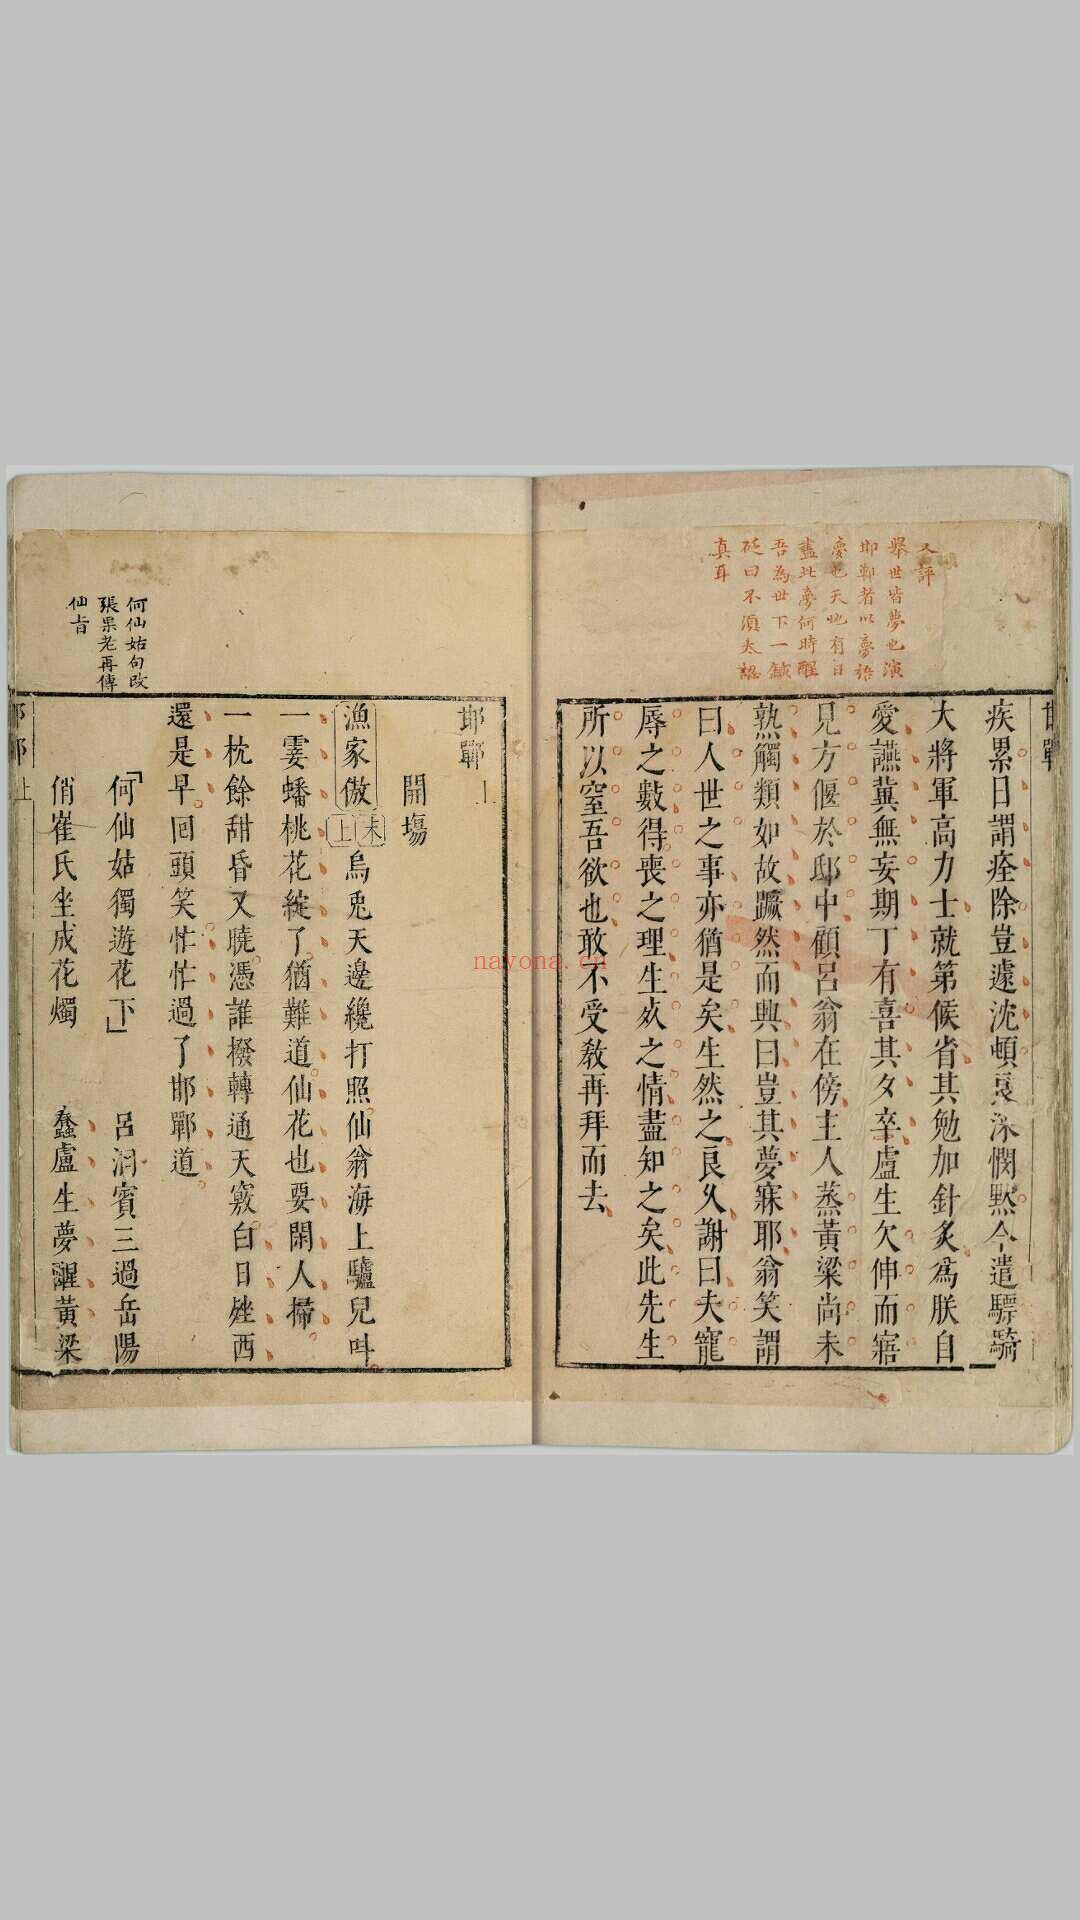 又評
舉世皆夢也演
邯鄲者以夢語
夢也天地有日
盡此夢何時醒
吾為世下一鍼
砭曰不須太認
真耳
邯鄲
疾累日謂痊除豈遽沈頓哀深憫默今遣驃騎
大將軍高力士就第候省其勉加針炙爲朕自
愛讌冀無妄期丁有喜其夕卒盧生欠伸而寤
見方偃於邸中顧呂翁在傍主人蒸黃粱尚未
熟觸類如故蹶然而興曰豈其夢寐耶翁笑謂
曰人世之事亦猶是矣生然之良久謝曰夫寵
辱之數得喪之理生死之情盡知之矣此先生
所以窒吾欲也敢不受教再拜而去
邯鄲 上
開場
漁家傲 末上 烏兎天邊纔打照仙翁海上驢兒呌
一霎蟠桃花綻了猶難道仙花也要閑人掃
一枕餘甜昏又曉憑誰撥轉通天竅白日㘸西
還是早回頭笑忙忙過了邯鄲道
何仙姑獨遊花下 呂洞賓三過岳陽
俏崔氏坐成花燭 蠢盧生夢醒黃粱
何仙姑句改
張果老再傳
仙旨
nayona.cn